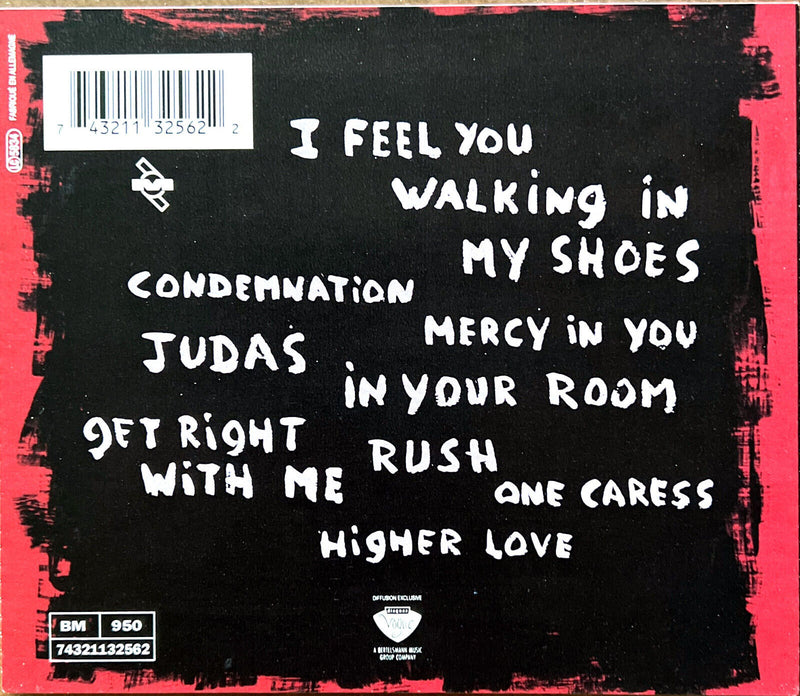 FABRIQUÉ EN ALLEMAGNE
LC 5834
7 43211 32562 2
I FEEL YOU
WALKiNg iN
MY SHOES
CONDEMNATiON
MERCY iN YOU
JUDAS
iN YOUR ROOM
gET RigHT
WiTH ME
RUSH
ONE CARESS
HigHER LOVE
DIFFUSION EXCLUSIVE
disques
Vogue
A BERTELSMANN MUSIC
GROUP COMPANY
BM 950
74321132562